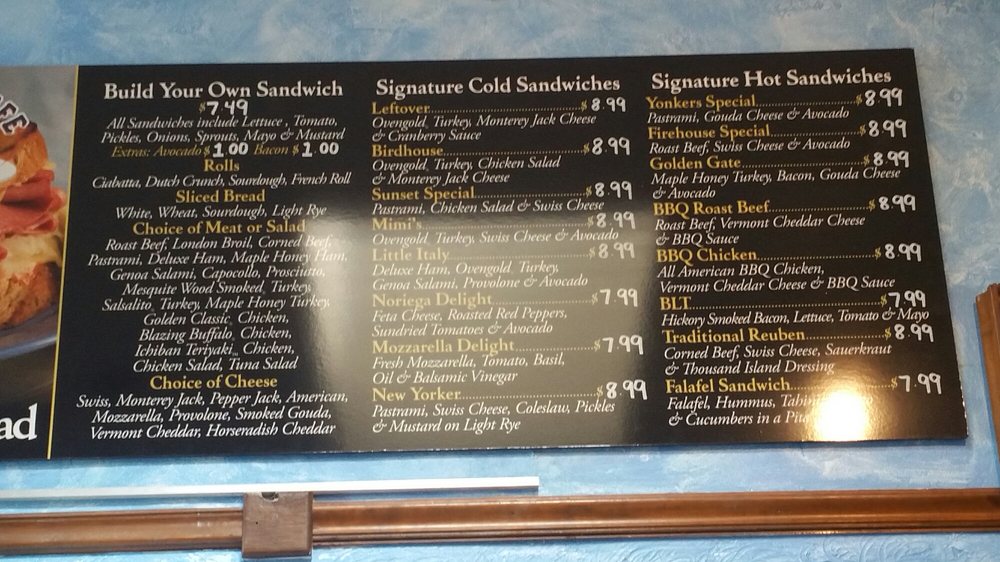 AFE
ad
Build Your Own Sandwich
$7.49
All Sandwiches include Lettuce , Tomato,
Pickles, Onions, Sprouts, Mayo & Mustard
Extras: Avocado $1.00 Bacon $1.00
Rolls
Ciabatta, Dutch Crunch, Sourdough, French Roll
Sliced Bread
White, Wheat, Sourdough, Light Rye
Choice of Meat or Salad
Roast Beef, London Broil, Corned Beef,
Pastrami, Deluxe Ham, Maple Honey Ham,
Genoa Salami, Capocollo, Prosciutto,
Mesquite Wood Smoked Turkey
Salsalito Turkey, Maple Honey Turkey,
Golden Classic Chicken,
Blazing Buffalo Chicken,
Ichiban Teriyaki Chicken,
Chicken Salad, Tuna Salad
Choice of Cheese
Swiss, Monterey Jack, Pepper Jack, American,
Mozzarella, Provolone, Smoked Gouda,
Vermont Cheddar, Horseradish Cheddar
Signature Cold Sandwiches
Leftover $8.99
Ovengold Turkey, Monterey Jack Cheese
& Cranberry Sauce
Birdhouse $8.99
Ovengold Turkey, Chicken Salad
& Monterey Jack Cheese
Sunset Special $8.99
Pastrami, Chicken Salad & Swiss Cheese
Mimi's $8.99
Ovengold Turkey, Swiss Cheese & Avocado
Little Italy $8.99
Deluxe Ham, Ovengold Turkey,
Genoa Salami, Provolone & Avocado
Noriega Delight $7.99
Feta Cheese, Roasted Red Peppers,
Sundried Tomatoes & Avocado
Mozzarella Delight $7.99
Fresh Mozzarella, Tomato, Basil,
Oil & Balsamic Vinegar
New Yorker $8.99
Pastrami, Swiss Cheese, Coleslaw, Pickles
& Mustard on Light Rye
Signature Hot Sandwiches
Yonkers Special $8.99
Pastrami, Gouda Cheese & Avocado
Firehouse Special $8.99
Roast Beef, Swiss Cheese & Avocado
Golden Gate $8.99
Maple Honey Turkey, Bacon, Gouda Cheese
& Avocado
BBQ Roast Beef $8.99
Roast Beef, Vermont Cheddar Cheese
& BBQ Sauce
BBQ Chicken $8.99
All American BBQ Chicken,
Vermont Cheddar Cheese & BBQ Sauce
BLT $7.99
Hickory Smoked Bacon, Lettuce, Tomato & Mayo
Traditional Reuben $8.99
Corned Beef, Swiss Cheese, Sauerkraut
& Thousand Island Dressing
Falafel Sandwich $7.99
Falafel, Hummus,
& Cucumbers in a